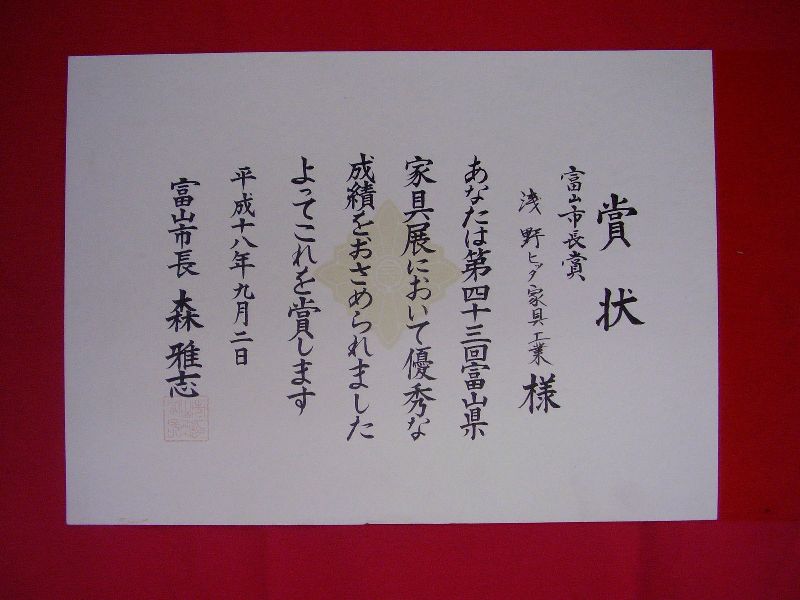 賞状
富山市長賞
浅野ヒダ家具工業 様
あなたは第四十三回富山県
家具展において優秀な
成績をおさめられました
よってこれを賞します
平成十八年九月二日
富山市長 森雅志